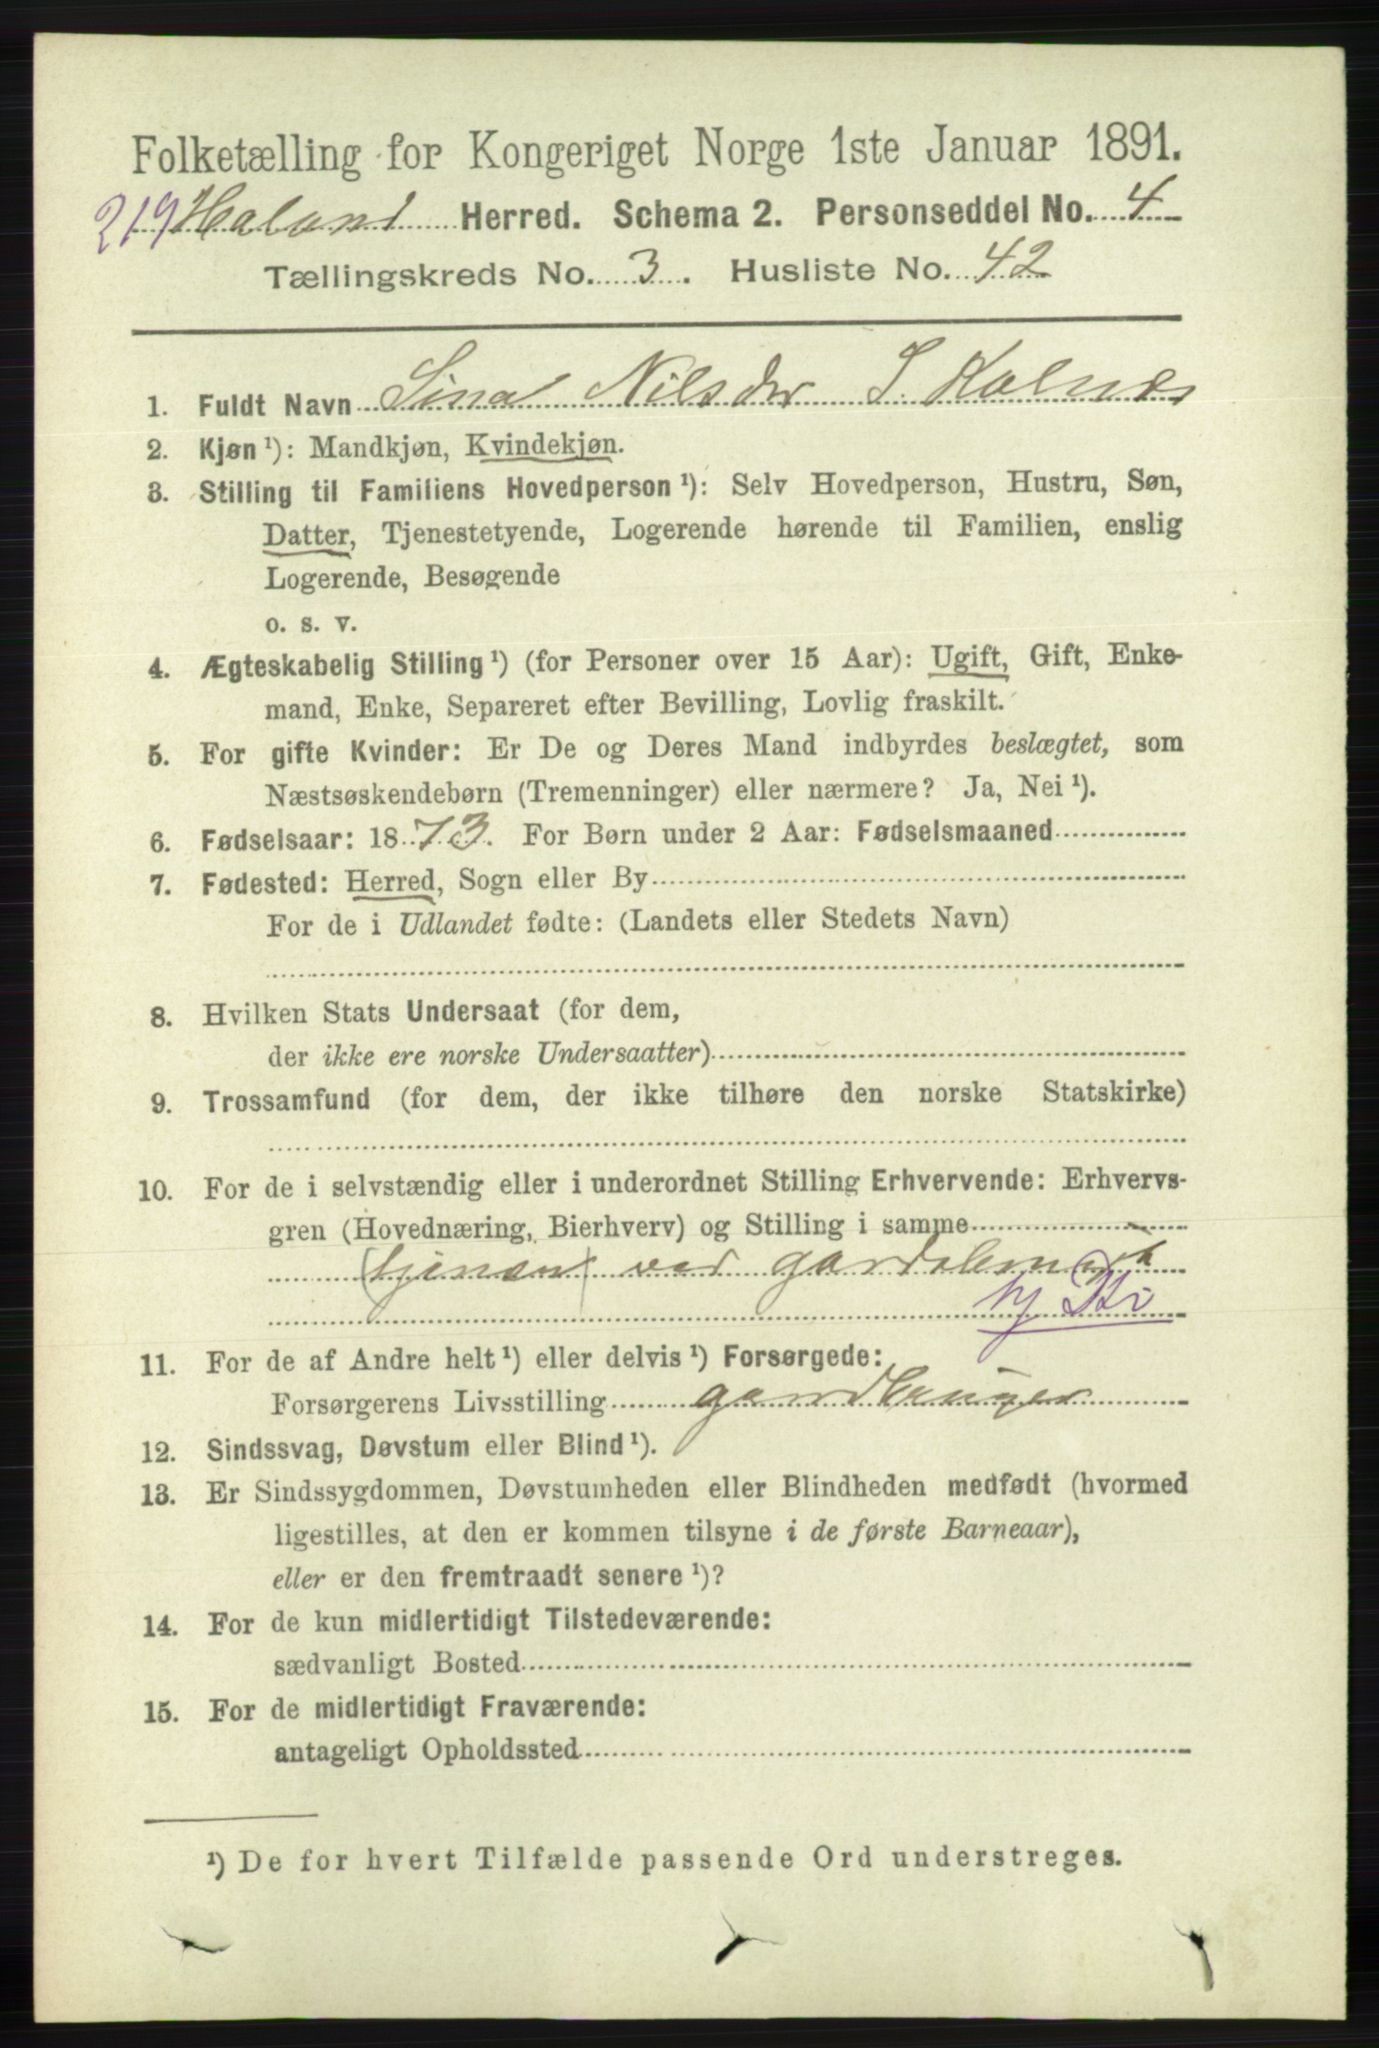 Folketælling for Kongeriget Norge 1ste Januar 1891.
219 Haland Herred. Schema 2. Personseddel No. 4
Tællingskreds No. 3. Husliste No. 42
1. Fuldt Navn Sina Nilsdtr S. Kolnes
2. Kjøn ¹): Mandkjøn, Kvindekjøn.
3. Stilling til Familiens Hovedperson ¹): Selv Hovedperson, Hustru, Søn,
Datter, Tjenestetyende, Logerende hørende til Familien, enslig
Logerende, Besøgende
o. s. v.
4. Ægteskabelig Stilling ¹) (for Personer over 15 Aar): Ugift, Gift, Enke-
mand, Enke, Separeret efter Bevilling, Lovlig fraskilt.
5. For gifte Kvinder: Er De og Deres Mand indbyrdes beslægtet, som
Næstsøskendebørn (Tremenninger) eller nærmere? Ja, Nei ¹).
6. Fødselsaar: 1873. For Børn under 2 Aar: Fødselsmaaned
7. Fødested: Herred, Sogn eller By
For de i Udlandet fødte: (Landets eller Stedets Navn)
8. Hvilken Stats Undersaat (for dem,
der ikke ere norske Undersaatter)
9. Trossamfund (for dem, der ikke tilhøre den norske Statskirke)
10. For de i selvstændig eller i underordnet Stilling Erhvervende: Erhvervs-
gren (Hovednæring, Bierhverv) og Stilling i samme
ved
11. For de af Andre helt ¹) eller delvis ¹) Forsørgede:
Forsørgerens Livsstilling gardbruger
12. Sindssvag, Døvstum eller Blind ¹).
13. Er Sindssygdommen, Døvstumheden eller Blindheden medfødt (hvormed
ligestilles, at den er kommen tilsyne i de første Barneaar),
eller er den fremtraadt senere ¹)?
14. For de kun midlertidigt Tilstedeværende:
sædvanligt Bosted
15. For de midlertidigt Fraværende:
antageligt Opholdssted
¹) De for hvert Tilfælde passende Ord understreges.